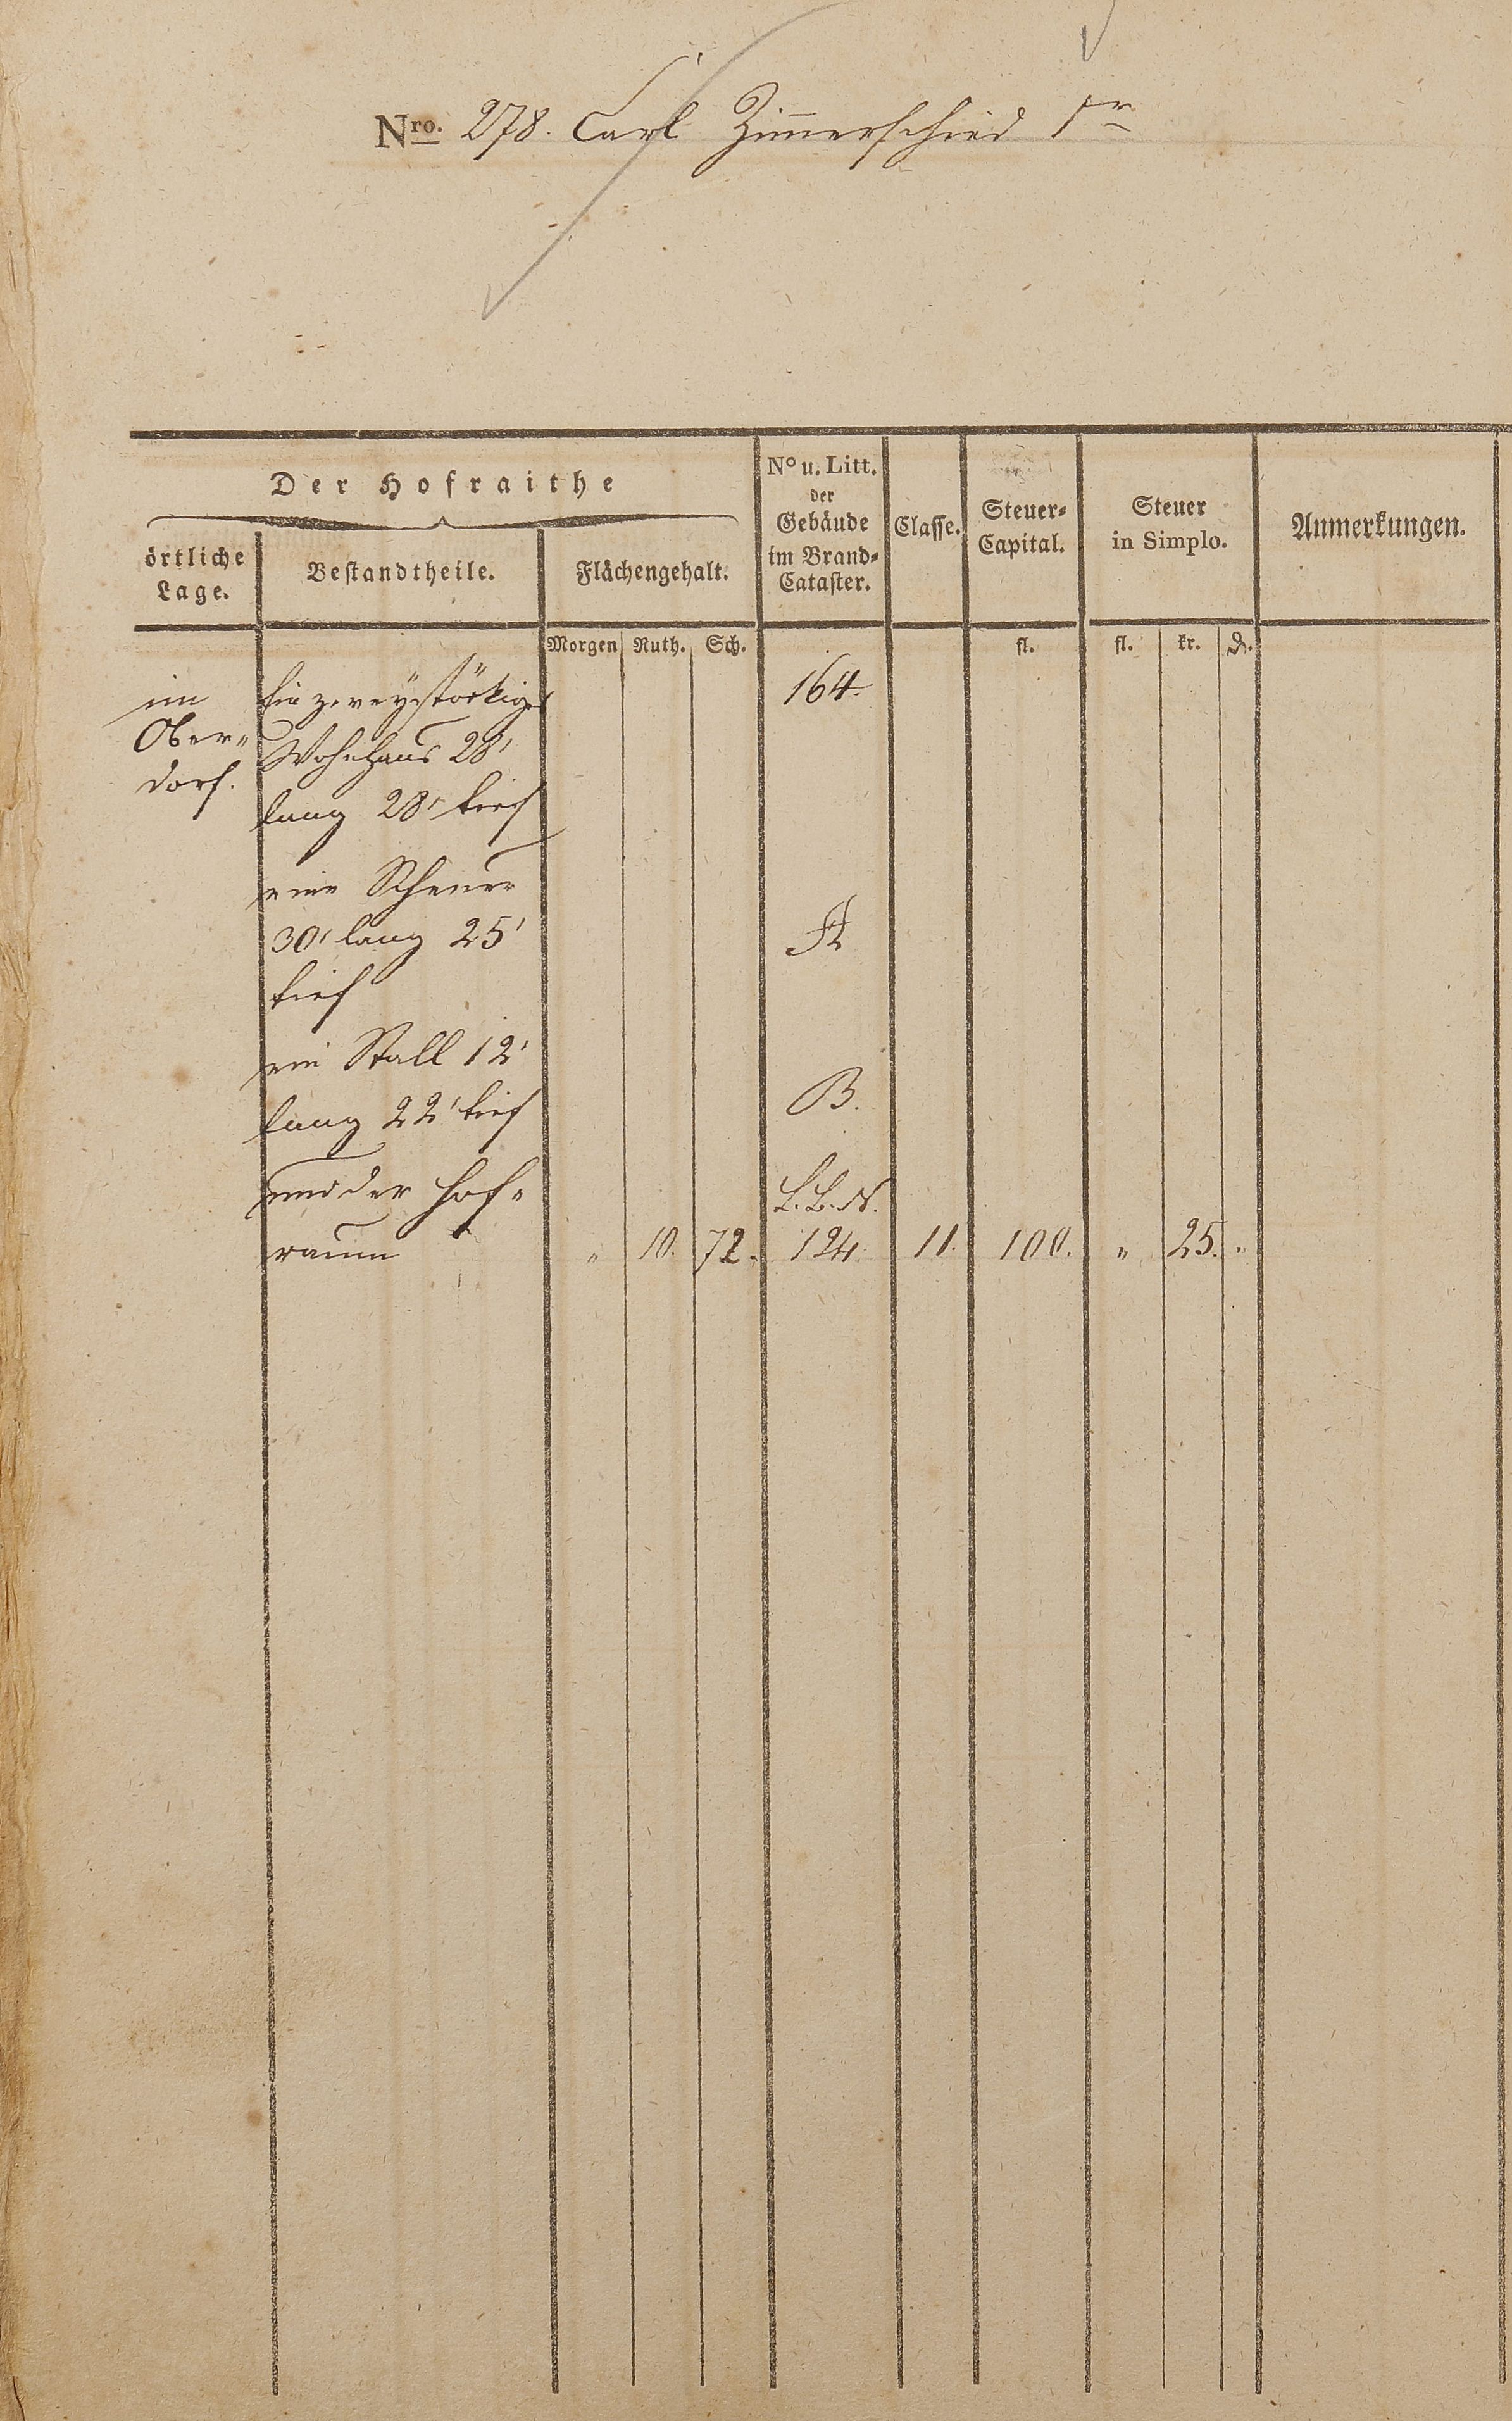 Nro. 278. Carl Zimmerschied 1r
Der Hofraithe
örtliche Lage.
Bestandtheile.
Flächengehalt.
No u. Litt. der Gebäude im Brand-Cataster.
Classe.
Steuer-Capital.
Steuer in Simplo.
Anmerkungen.
Morgen Ruth. Sch. fl. fl. kr. ₰.
im Ein zweystökiges 164.
Ober„ Wohnhaus 28'
dorf. lang 28' tief
eine Scheuer
30' lang 25' A
tief
ein Stall 12'
lang 22' tief B.
und der Hof„ L.B.N.
raum „ 10. 72. 124. 11. 100. „ 25. „